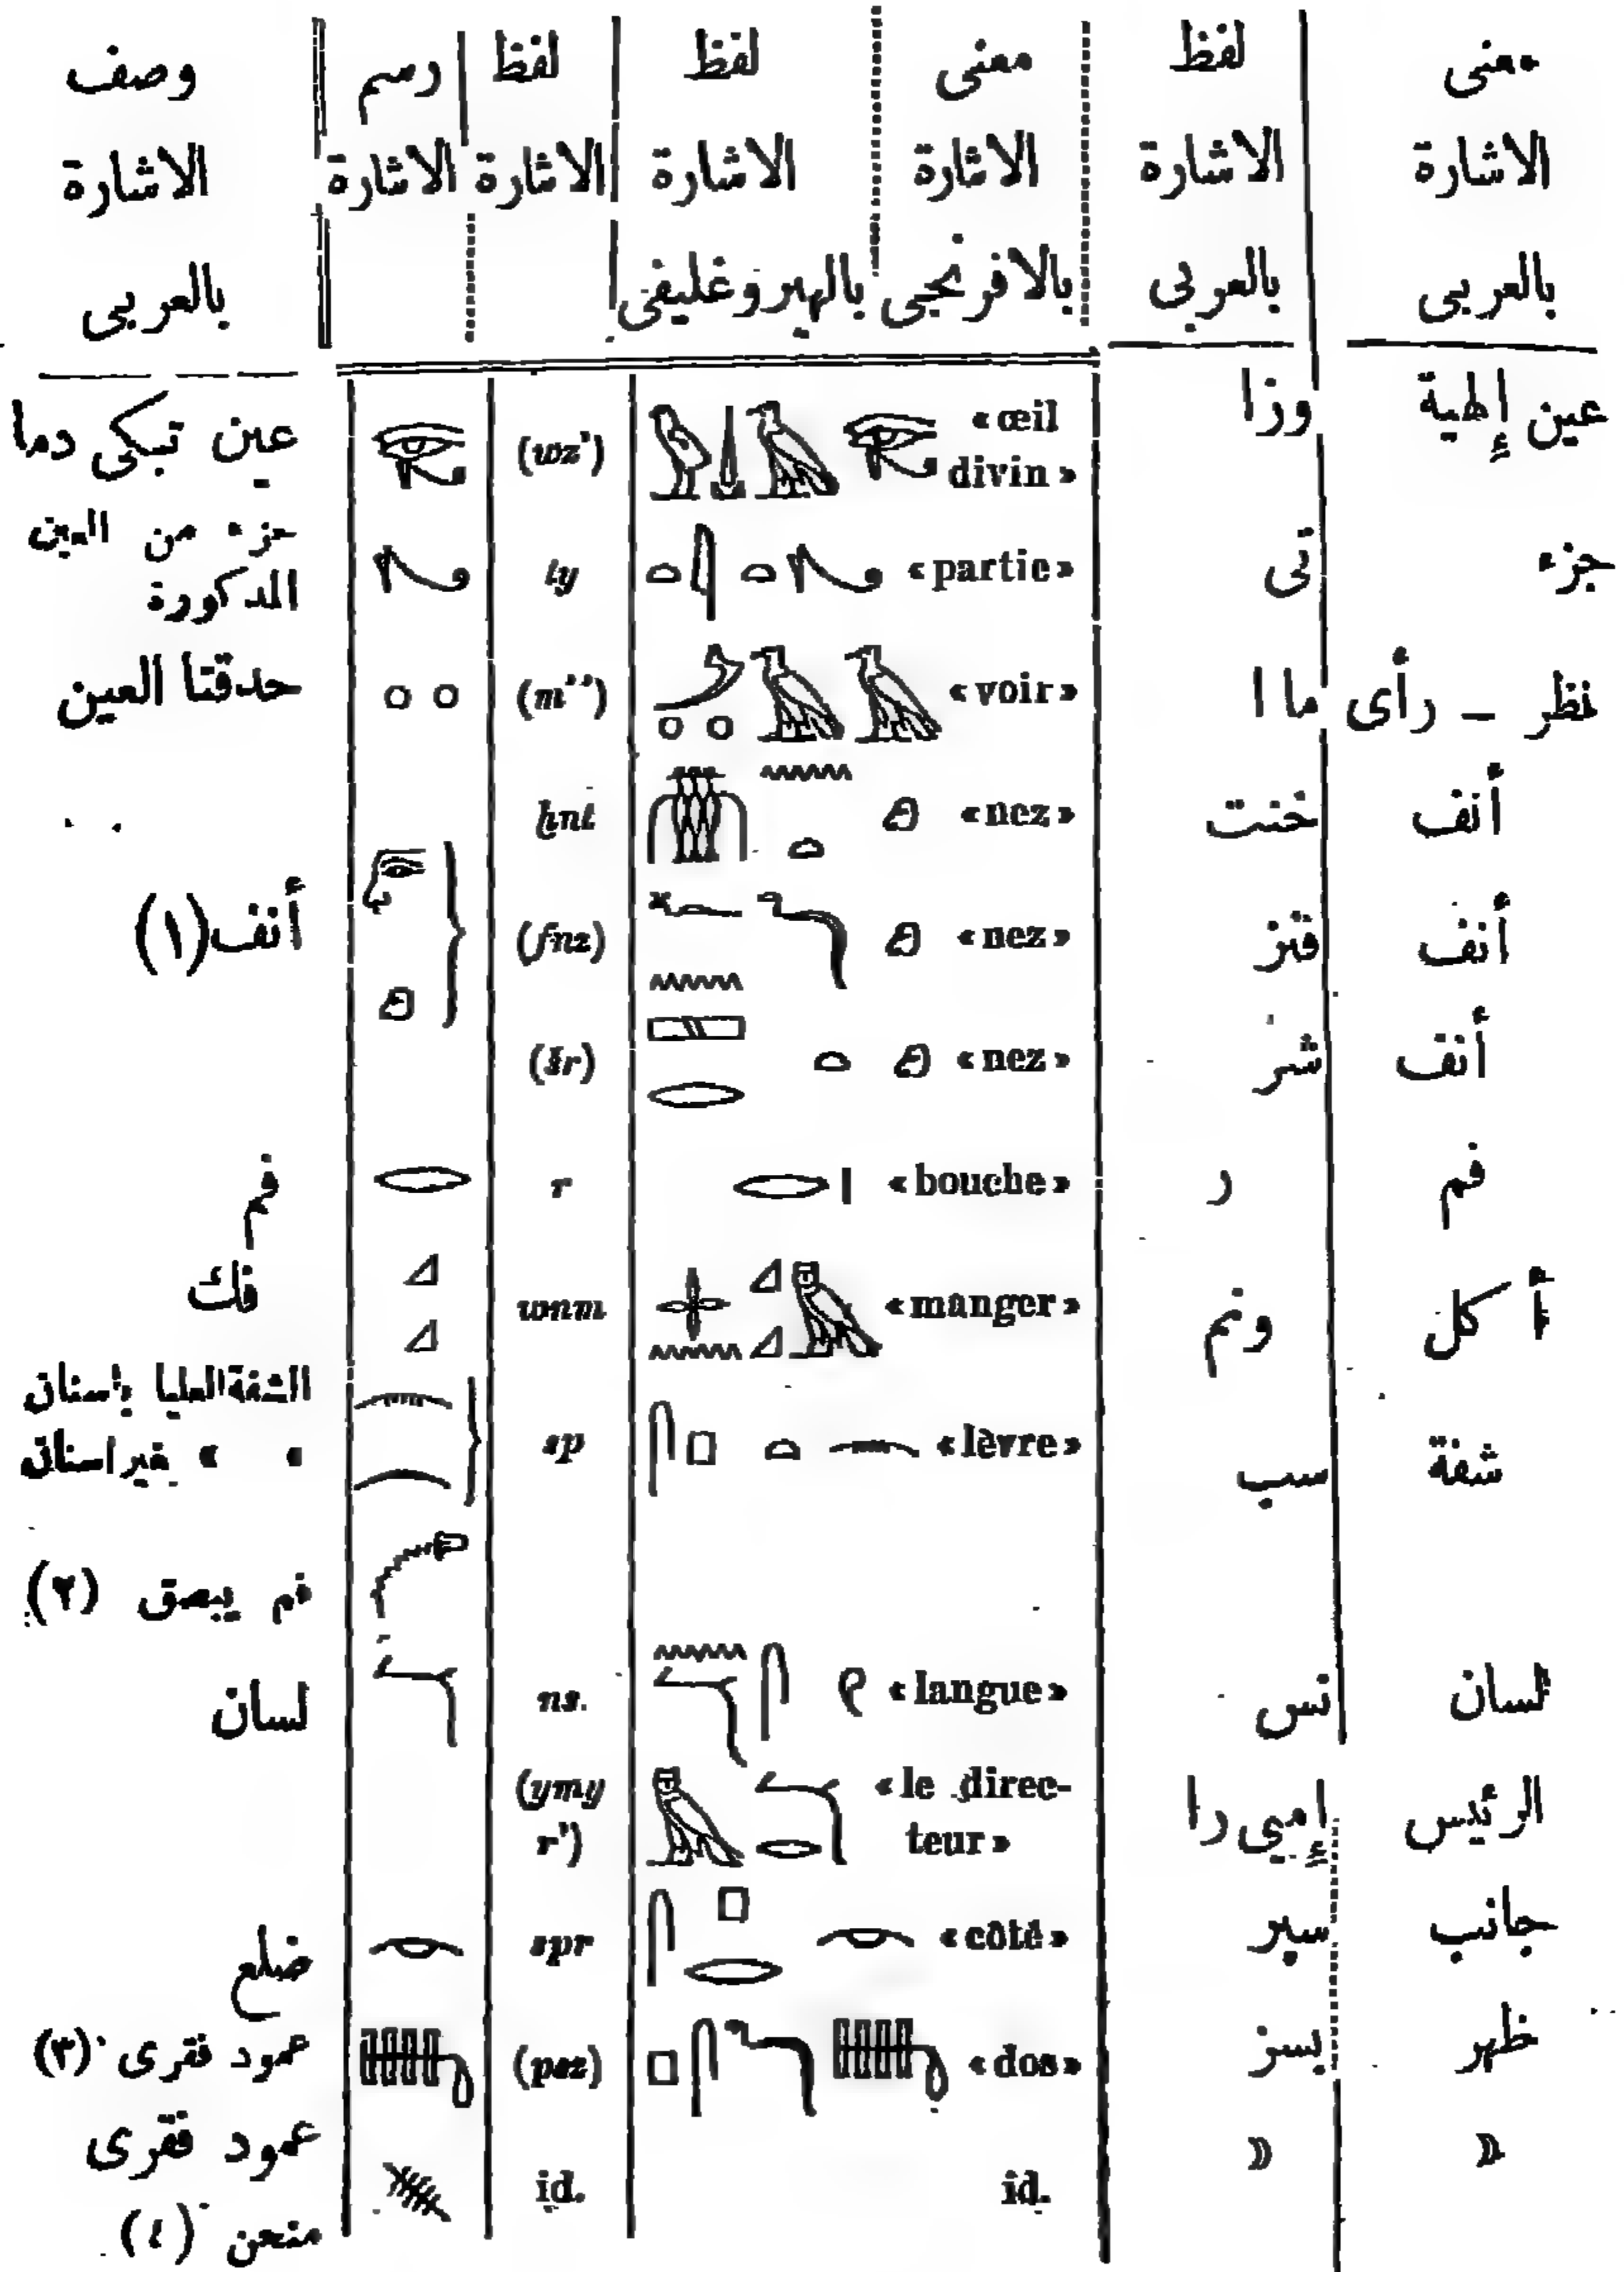 معنى لفظ معنى لفظ لفظ رسم وصف
الاشارة الاشارة الاشارة الاشارة الاشارة الاشارة الاشارة
بالعربى بالعربى بالافرنجى بالهيروغليفى بالعربى
عين إلهية وزا «œil divin» (wz') عين تبكى دما
جزء تى «partie» ty جزء من العين المذكورة
نظر ـ رأى ما ا «voir» (m'') حدقتا العين
أنف خنت «nez» ḫnt
أنف فنز «nez» (fnz) أنف (١)
أنف شر «nez» (šr)
فم ر «bouche» r فم
أكل ونم «manger» wnm فك
شفة سب «lèvre» sp الشفة العليا باسنان
» » بغير اسنان
فم يبصق (٢)
لسان نس «langue» ns. لسان
الرئيس إميى را «le directeur» (ymy r')
جانب سپر «côté» spr ضلع
ظهر پسز «dos» (psz) عمود فقرى (٣)
» » id. id. عمود فقرى
منحن (٤)